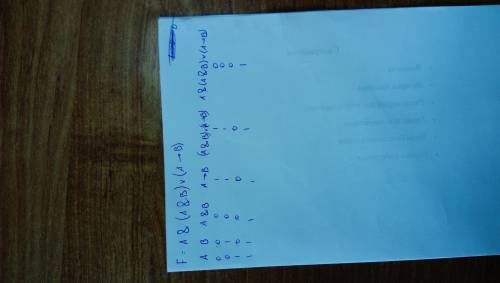 F = A & (A & B) v (A → B)
A B A & B A → B (A & B) v (A → B) A & (A & B) v (A → B)
0 0 0 1 1 0
0 1 0 1 1 0
1 0 0 0 0 0
1 1 1 1 1 1